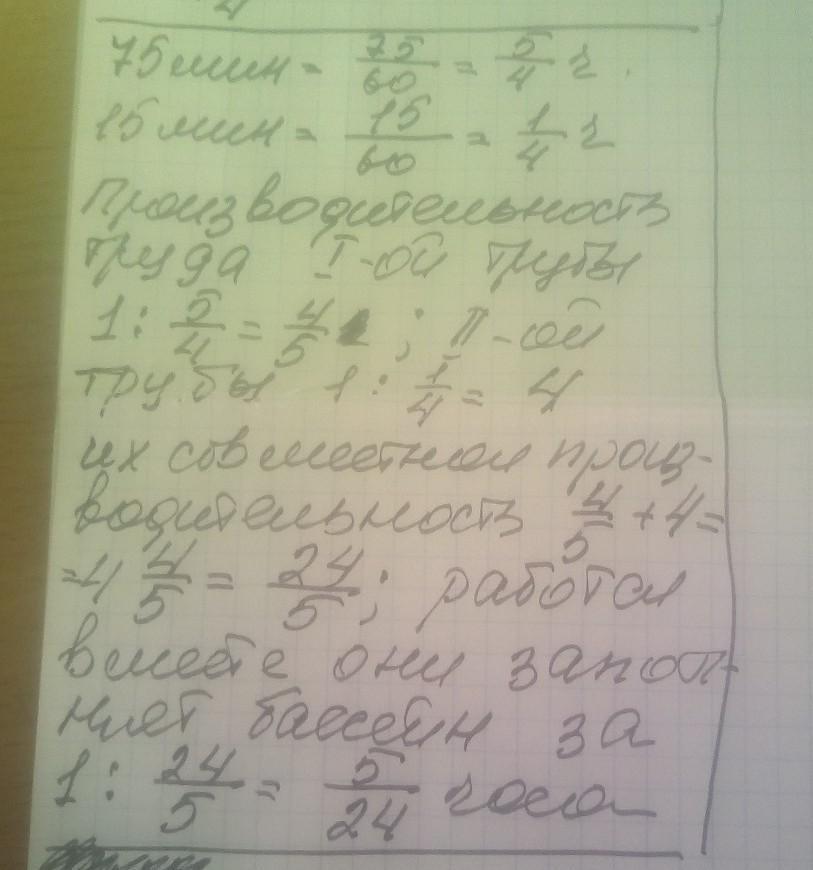 75мин = 75/60 = 5/4 ч.
15мин = 15/60 = 1/4 ч
Производительность
труда I-ой трубы
1 : 5/4 = 4/5 ; II-ой
трубы 1 : 1/4 = 4
их совместная произ-
водительность 4/5 + 4 =
= 4 4/5 = 24/5 ; работая
вместе они запол-
нят бассейн за
1 : 24/5 = 5/24 часа